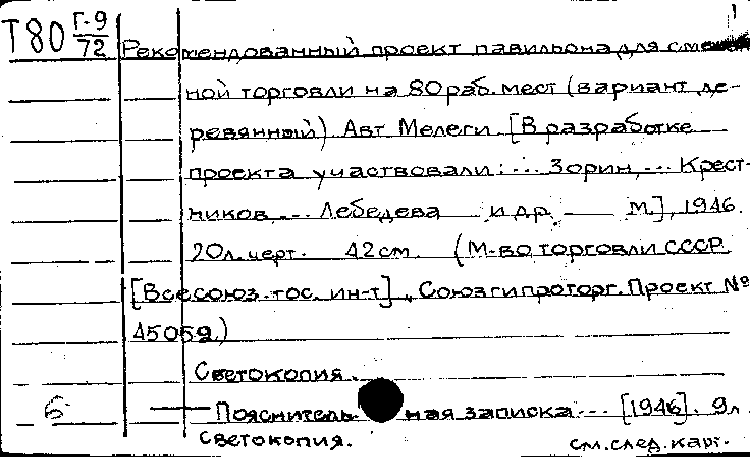 Т80 Г-9/72 Рекомендованный проект павильона для смешан-
ной торговли на 80 раб. мест (вариант де-
ревянный). Авт Мелеги. [В разработке
проекта участвовали: ... Зорин, ... Крест-
ников, ... Лебедева и др. — М.], 1946.
20л. черт. 42см. (М-во торговли СССР.
[Всесоюз. гос. ин-т] „Союзгипроторг. Проект №
45059.)
Светокопия.
6 — Пояснительная записка ... [1946]. 9л.
Светокопия. см. след. карт.